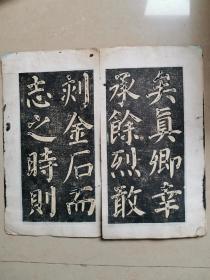 矣真卿幸
承餘烈敢
刻金石而
志之時則